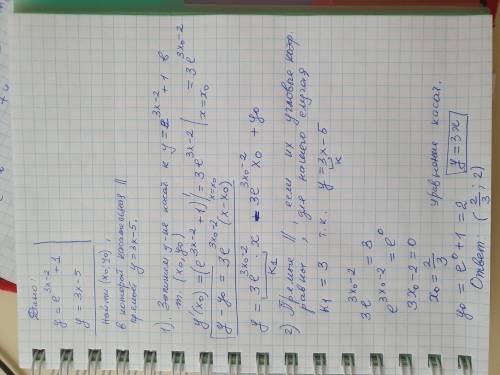 Дано:
y = e^{3x-2} + 1
y = 3x-5
Найти (x₀, y₀),
в которой касательная ||
прямой y = 3x-5.
1). Запишем ур-ие касат к y = e^{3x-2} + 1 в
т. (x₀, y₀)
y'(x₀) = (e^{3x-2} + 1)'|_{x=x₀} = 3e^{3x-2}|_{x=x₀} = 3e^{3x₀-2}
y - y₀ = 3e^{3x₀-2} (x-x₀)
y = 3e^{3x₀-2} · x - 3e^{3x₀-2} x₀ + y₀
k₁
2) Прямые ||, если их угловые коэф.
равны, для нашего случая
k₁ = 3 т.к. y = 3x-5
k
3e^{3x₀-2} = 3
e^{3x₀-2} = e⁰
3x₀-2 = 0
x₀ = 2/3
y₀ = e⁰ + 1 = 2
уравнение касат.
y = 3x
Ответ (2/3; 2)